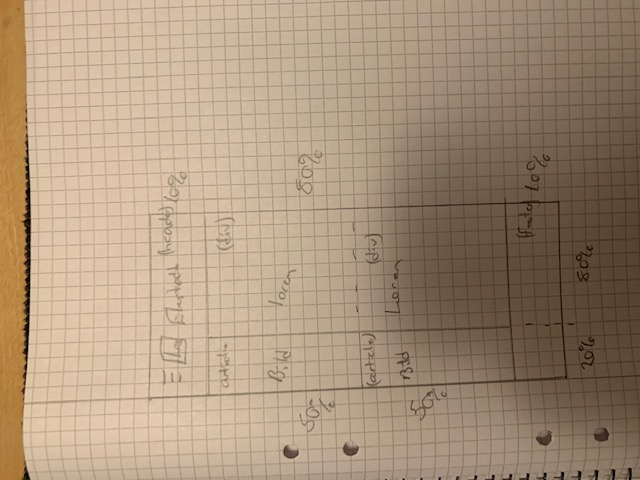 (header) 10%
article (div)
Bild lorem
50% 80%
(article) (div)
Bild Lorem
50%
(footer) 10%
20% 80%